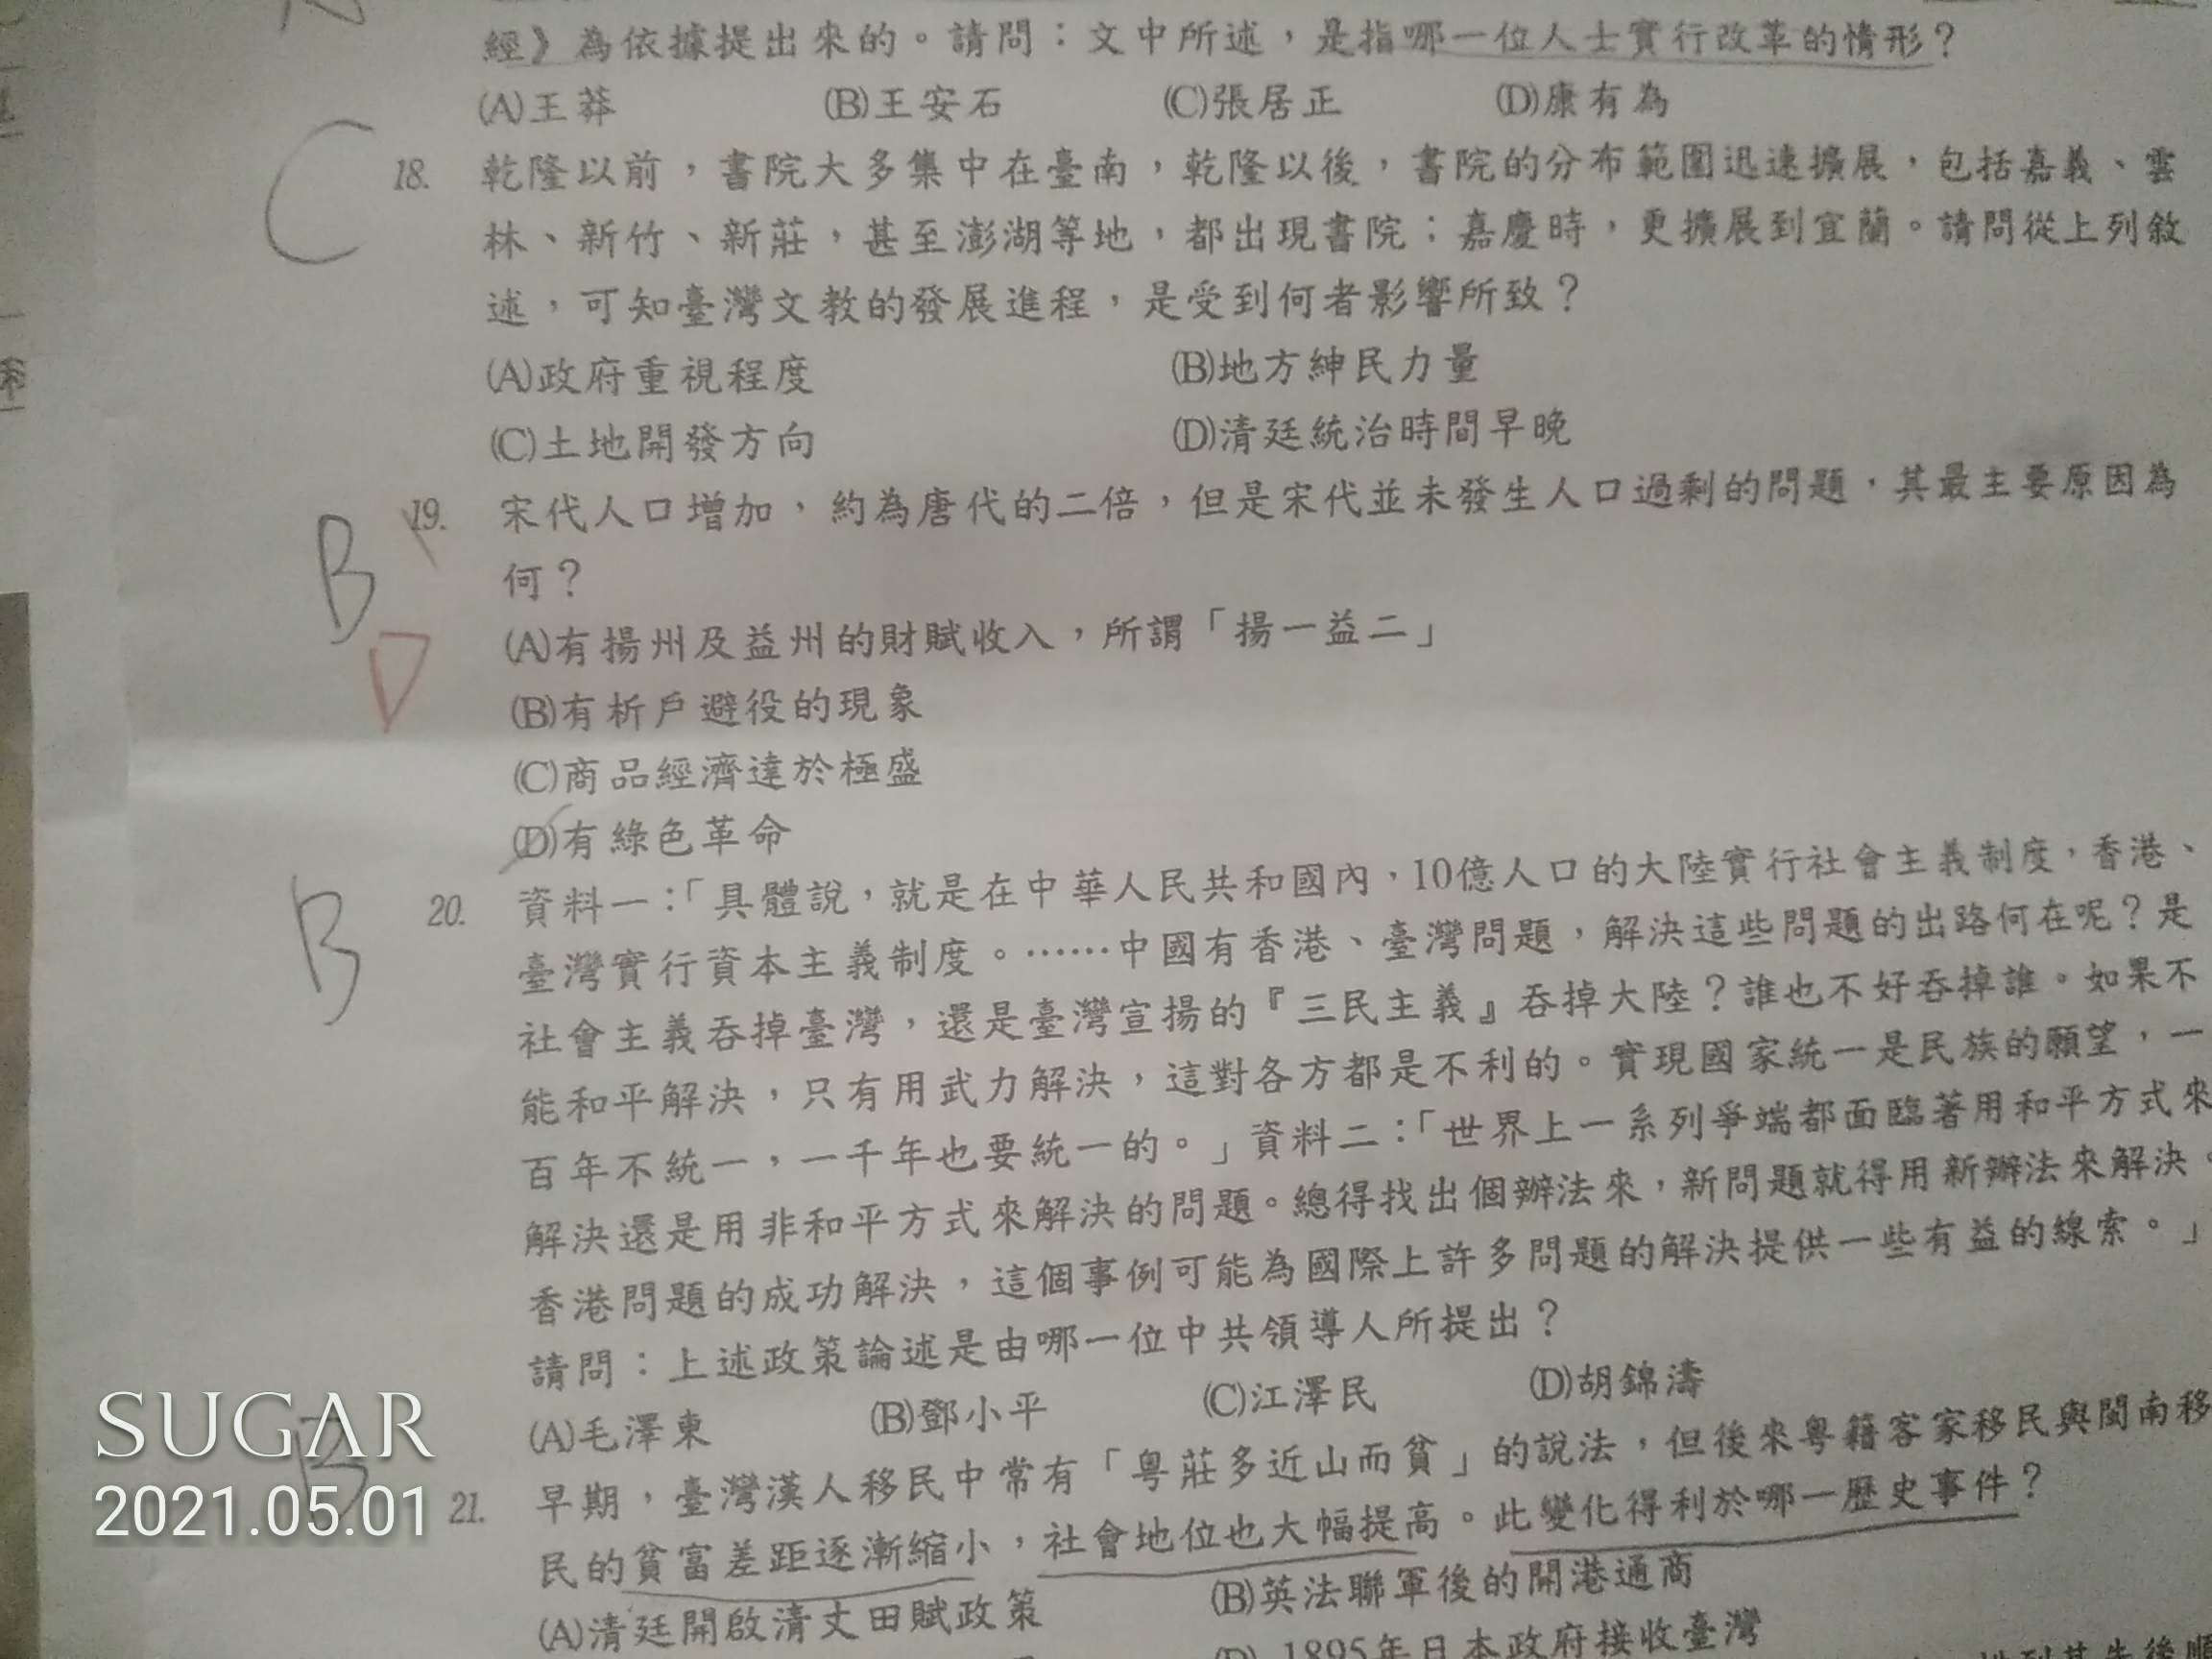 經》為依據提出來的。請問：文中所述，是指哪一位人士實行改革的情形？
(A)王莽 (B)王安石 (C)張居正 (D)康有為
C
18. 乾隆以前，書院大多集中在臺南，乾隆以後，書院的分布範圍迅速擴展，包括嘉義、雲
林、新竹、新莊，甚至澎湖等地，都出現書院；嘉慶時，更擴展到宜蘭。請問從上列敘
述，可知臺灣文教的發展進程，是受到何者影響所致？
(A)政府重視程度 (B)地方紳民力量
(C)土地開發方向 (D)清廷統治時間早晚
B
19. 宋代人口增加，約為唐代的二倍，但是宋代並未發生人口過剩的問題，其最主要原因為
何？
D
(A)有揚州及益州的財賦收入，所謂「揚一益二」
(B)有析戶避役的現象
(C)商品經濟達於極盛
(D)有綠色革命
B
20. 資料一：「具體說，就是在中華人民共和國內，10億人口的大陸實行社會主義制度，香港、
臺灣實行資本主義制度。……中國有香港、臺灣問題，解決這些問題的出路何在呢？是
社會主義吞掉臺灣，還是臺灣宣揚的『三民主義』吞掉大陸？誰也不好吞掉誰。如果不
能和平解決，只有用武力解決，這對各方都是不利的。實現國家統一是民族的願望，一
百年不統一，一千年也要統一的。」資料二：「世界上一系列爭端都面臨著用和平方式來
解決還是用非和平方式來解決的問題。總得找出個辦法來，新問題就得用新辦法來解決。
香港問題的成功解決，這個事例可能為國際上許多問題的解決提供一些有益的線索。」
請問：上述政策論述是由哪一位中共領導人所提出？
(A)毛澤東 (B)鄧小平 (C)江澤民 (D)胡錦濤
B
21. 早期，臺灣漢人移民中常有「粵莊多近山而貧」的說法，但後來粵籍客家移民與閩南移
民的貧富差距逐漸縮小，社會地位也大幅提高。此變化得利於哪一歷史事件？
(A)清廷開啟清丈田賦政策 (B)英法聯軍後的開港通商
(D) 1895年日本政府接收臺灣
SUGAR
2021.05.01